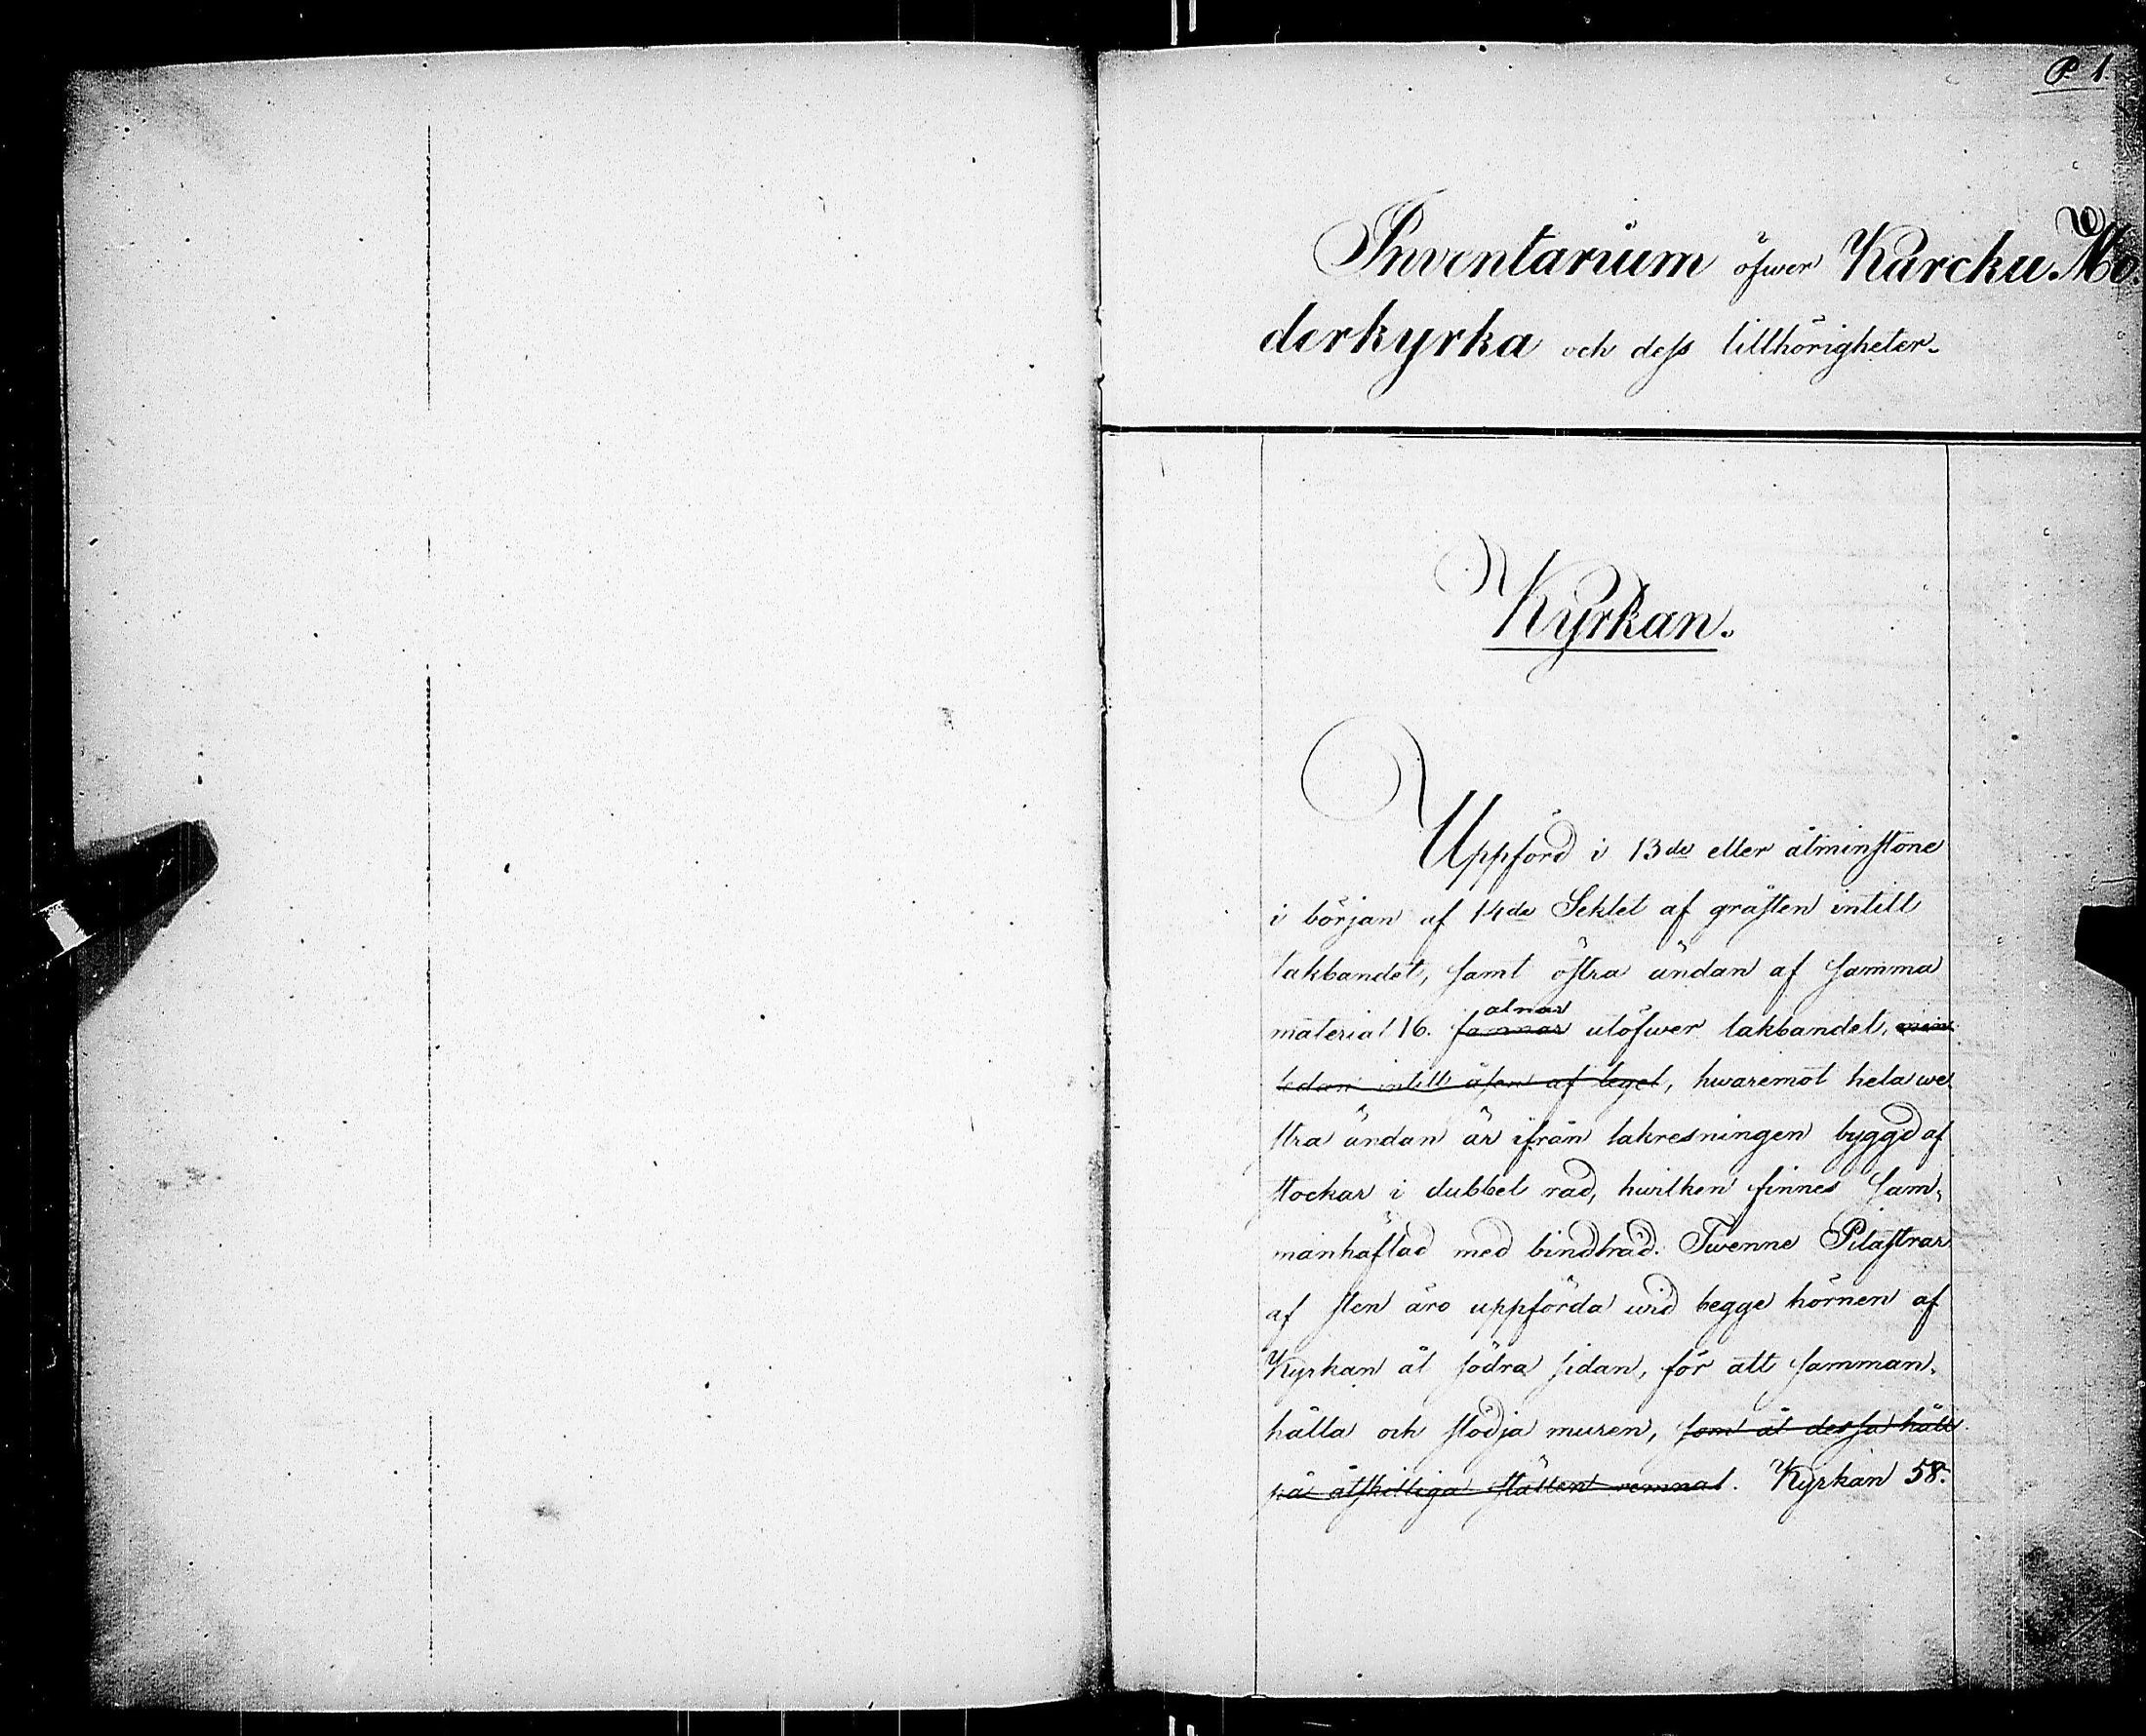 P 1.
Inventarium öfwer Karcku Mo-
derkyrka och dess tillhörigheter.
Kyrkan.
Uppförd i 13de eller åtminstone
i början af 14de Seklet af gråsten intill
takbandet, samt östra ändan af samma
material 16. famnar alnar utöfwer takbandet,
intill åsen af tegel, hwaremot hela we-
stra ändan är ifrån takresningen byggd af
stockar i dubbel rad, hwilken finnes sam-
manhäftad med bindträd. Twenne Pilastrar
af sten äro uppförda wid begge hörnen af
Kyrkan åt södra sidan, för att samman-
hålla och stödja muren, som åt dessa håll
på åtskilliga ställen remnat. Kyrkan 58.